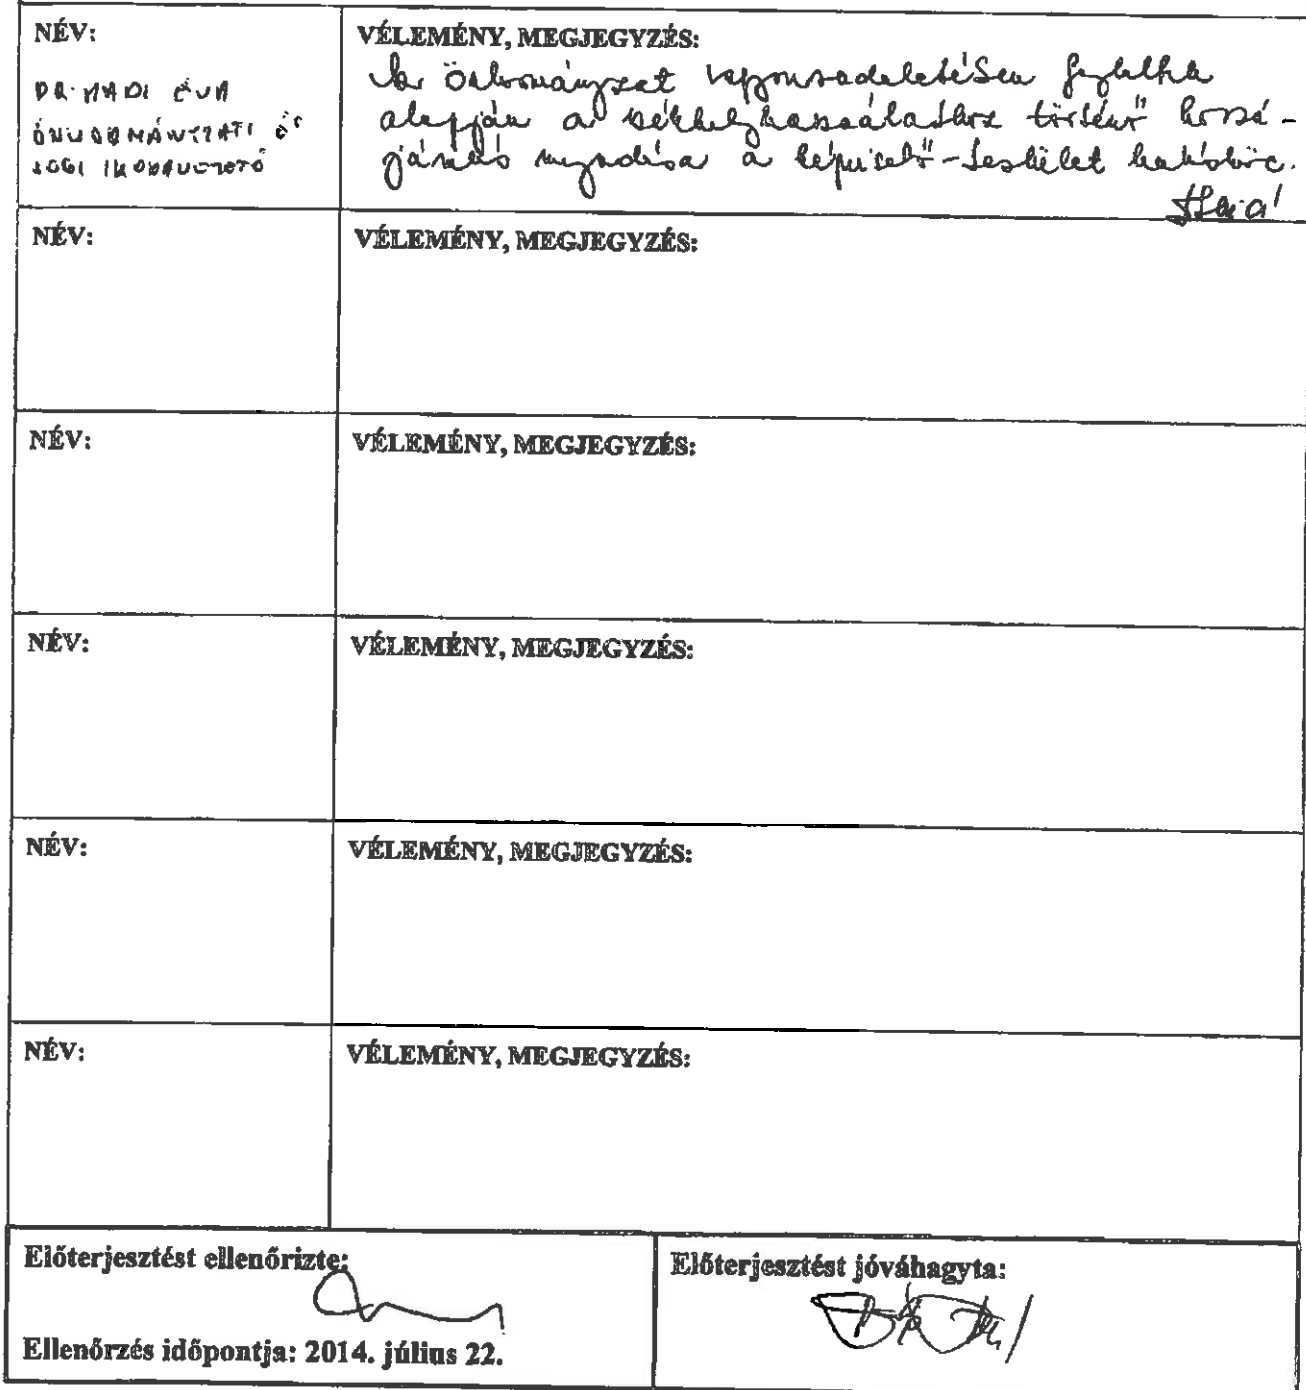 NÉV:
DR. MÁDI ÉVA
ÖNKORMÁNYZATI ÉS
JOGI IRODAVEZETŐ
VÉLEMÉNY, MEGJEGYZÉS:
Az önkormányzat vagyonrendeletében foglaltak
alapján a székhelyhasználathoz történő hozzá-
járulás megadása a képviselő-testület hatásköre.
NÉV:
VÉLEMÉNY, MEGJEGYZÉS:
NÉV:
VÉLEMÉNY, MEGJEGYZÉS:
NÉV:
VÉLEMÉNY, MEGJEGYZÉS:
NÉV:
VÉLEMÉNY, MEGJEGYZÉS:
NÉV:
VÉLEMÉNY, MEGJEGYZÉS:
Előterjesztést ellenőrizte:
Ellenőrzés időpontja: 2014. július 22.
Előterjesztést jóváhagyta: